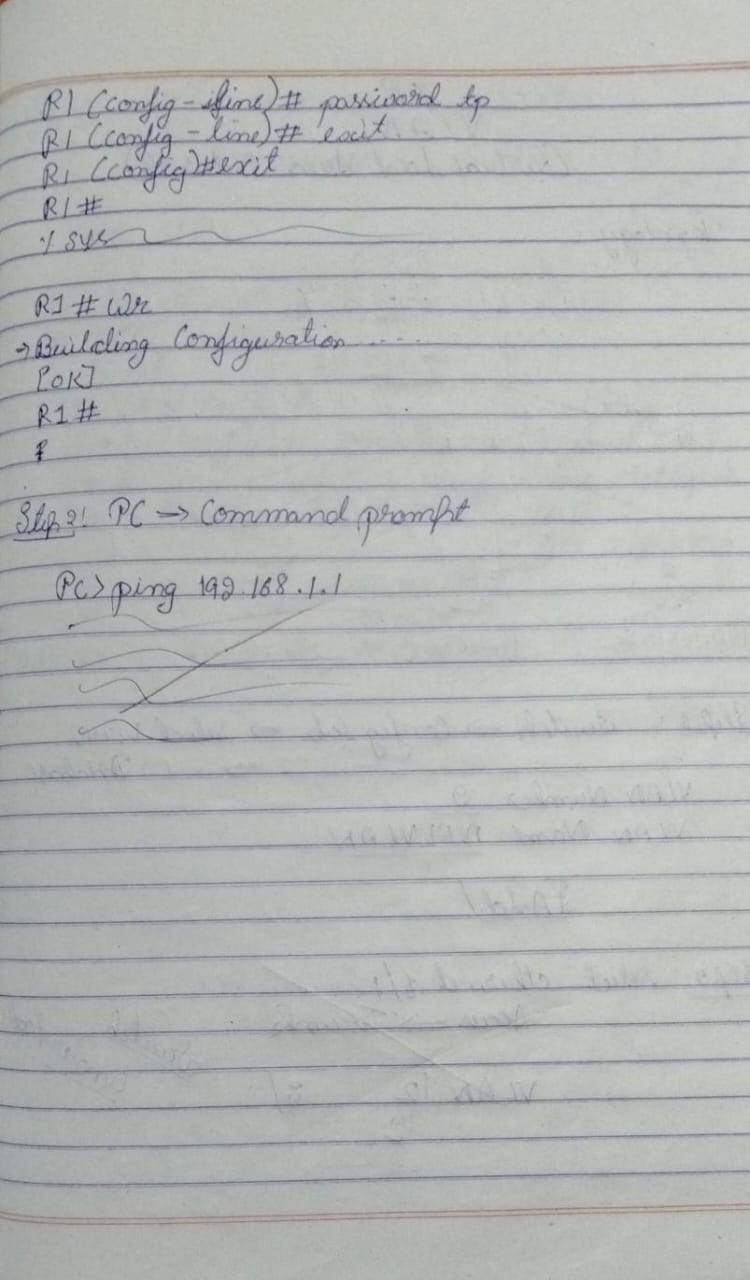 R1 (config-line)# password tp
R1 (config-line)# exit
R1 (config)#exit
R1#
% sys
R1 # wr
→ Building Configuration ....
[OK]
R1 #
Step 3: PC → Command prompt
PC> ping 192.168.1.1